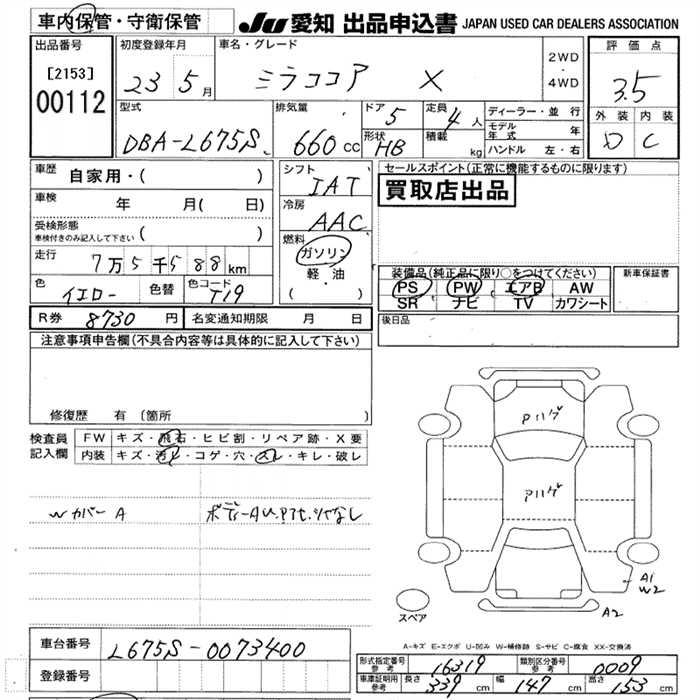 車内保管・守衛保管
JU 愛知 出品申込書 JAPAN USED CAR DEALERS ASSOCIATION
出品番号
[2153]
00112
初度登録年月
23 5月
車名・グレード
ミラココア X
2WD
・
4WD
評価点
3.5
外装 内装
D C
型式
DBA-L675S
排気量
660 cc
ドア 5
形状 HB
定員 4人
積載 kg
ディーラー・並行
モデル年式 年
ハンドル 左・右
車歴
自家用・( )
車検
年 月( 日)
受検形態
車検付きのみ記入して下さい ( )
走行
7万5千588km
色
イエロー
色替
色コード
T19
シフト
IAT
冷房
AAC
燃料
ガソリン
軽・油
( ・ )
セールスポイント(正常に機能するものに限ります)
買取店出品
装備品(純正品に限り○をつけてください)
PS PW エアB AW
SR ナビ TV カワシート
新車保証書
後日品
R券 8730 円 名変通知期限 月 日
注意事項申告欄(不具合内容等は具体的に記入して下さい)
修復歴 有 〔箇所 〕
検査員記入欄
FW キズ・飛石・ヒビ割・リペア跡・X要
内装 キズ・汚れ・コゲ・穴・スレ・キレ・破レ
Wカバー A
アハゲ
アハゲ
A1
W2
A2
スペア
A-キズ E-エクボ U-凹み W-補修跡 S-サビ C-腐食 XX-交換済
車台番号 L675S-0073400
登録番号
形式指定番号 参考 16319
類別区分番号 参考 0009
車庫証明用 参考 長さ 339 cm 幅 147 cm 高さ 153 cm